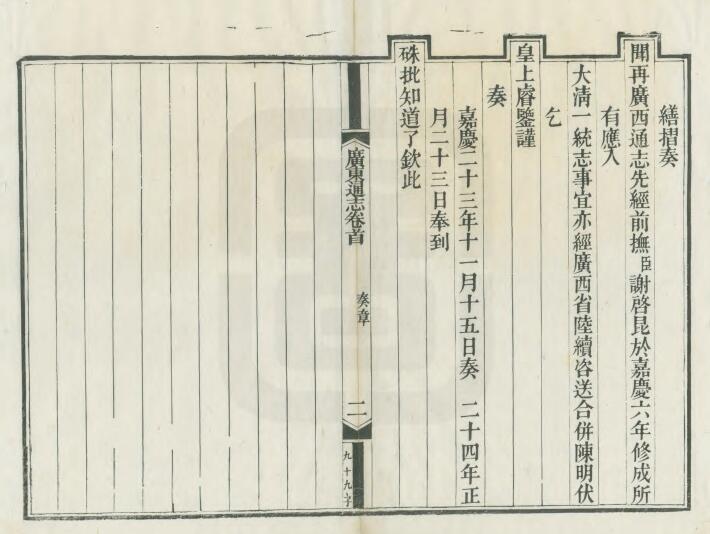 繕摺奏
聞再廣西通志先經前撫臣謝啓昆於嘉慶六年修成所
有應入
大清一統志事宜亦經廣西省陸續咨送合併陳明伏
乞
皇上睿鑒謹
奏
嘉慶二十三年十一月十五日奏　二十四年正
月二十三日奉到
硃批知道了欽此
廣東通志卷首
奏章
二
九十九字